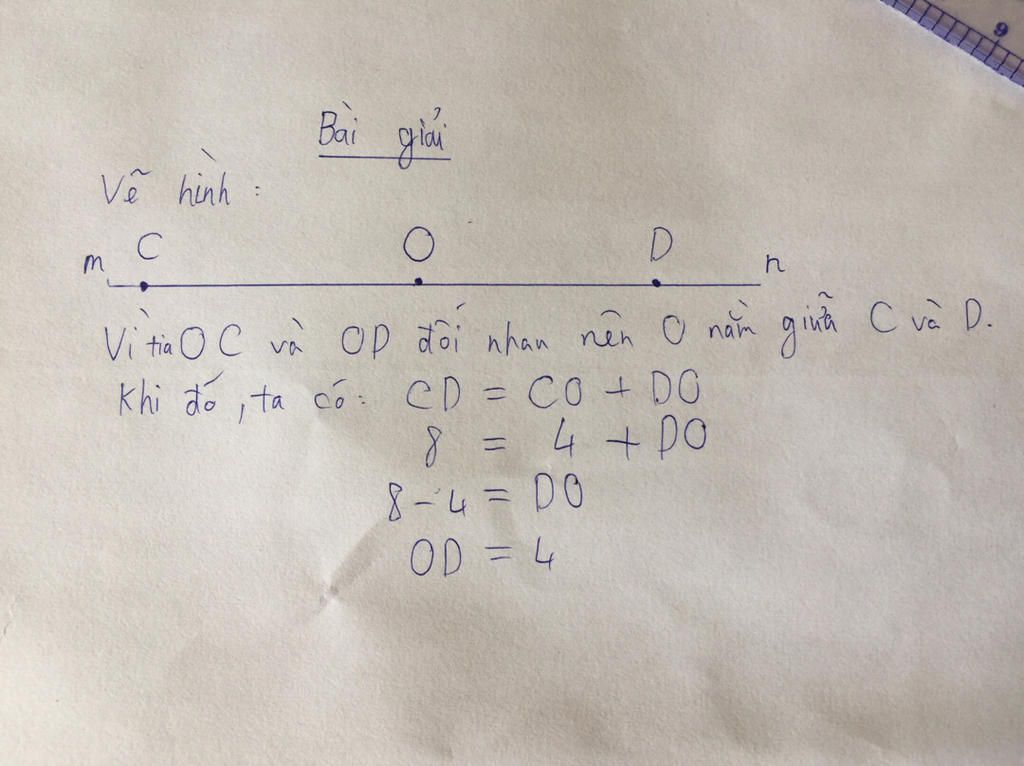 9
Bài giải
Vẽ hình :
m C O D n
Vì tia OC và OD đối nhau nên O nằm giữa C và D.
Khi đó, ta có: CD = CO + DO
8 = 4 + DO
8 - 4 = DO
OD = 4